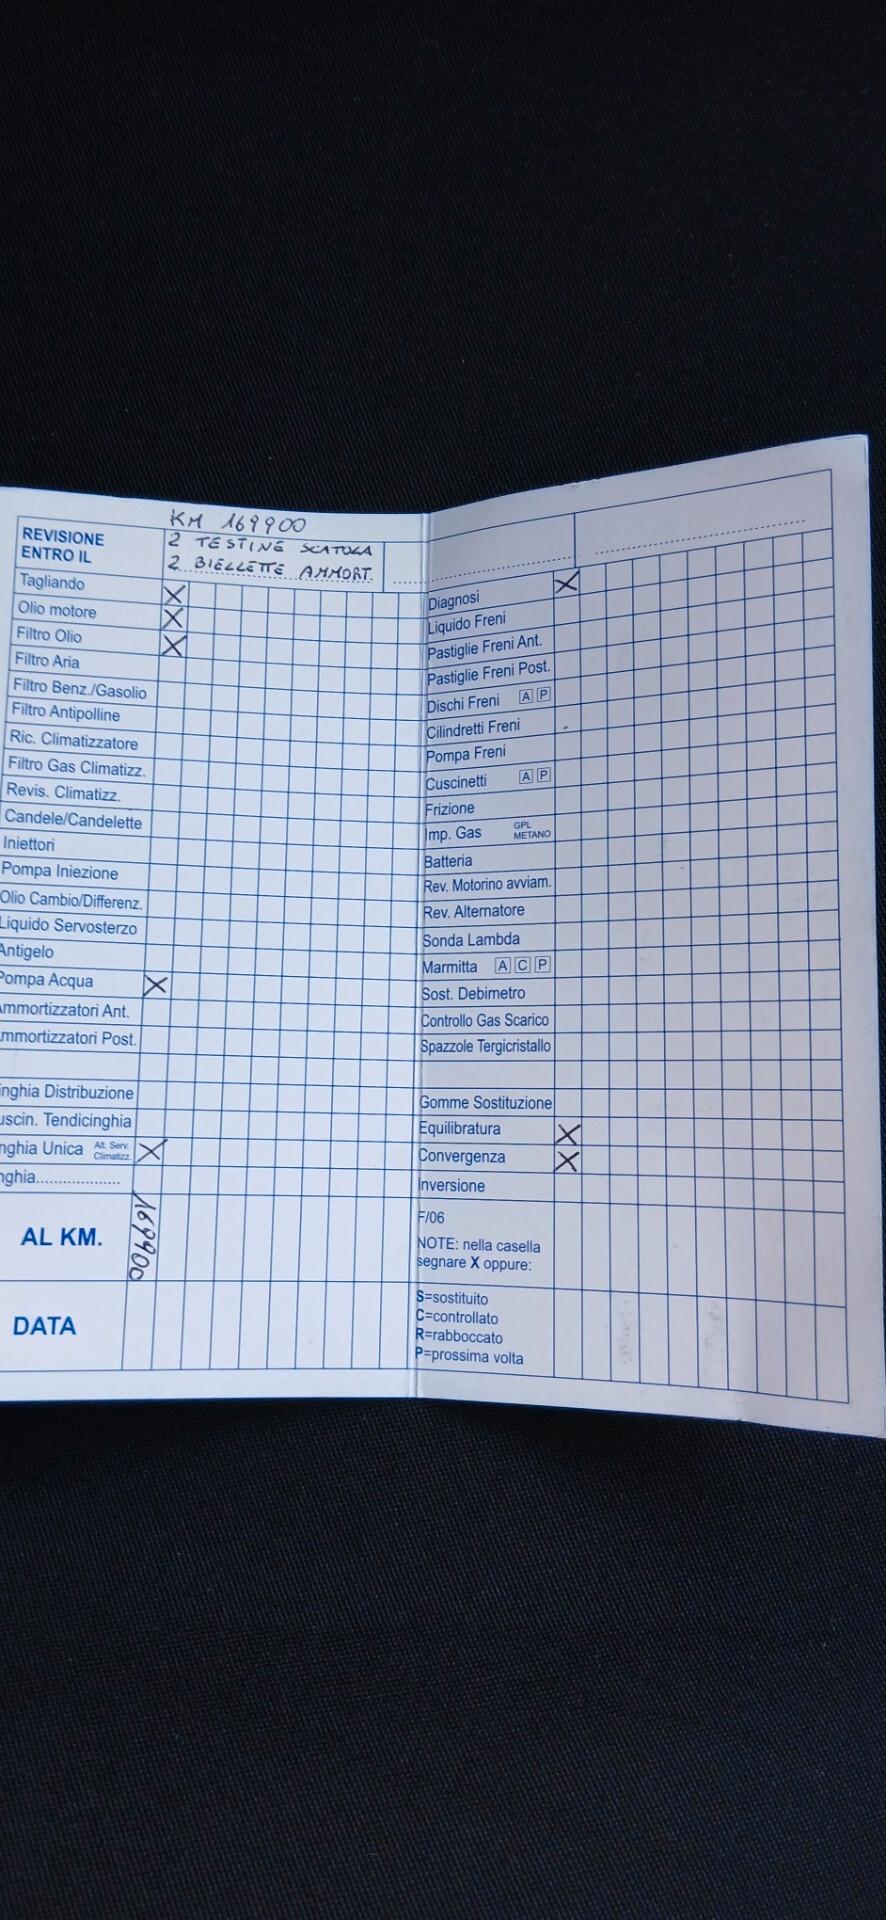 KM 169900
REVISIONE
ENTRO IL
2 TESTINE SCATOLA
2 BIELLETTE AMMORT.
Tagliando X
Olio motore X
Filtro Olio X
Filtro Aria
Filtro Benz./Gasolio
Filtro Antipolline
Ric. Climatizzatore
Filtro Gas Climatizz.
Revis. Climatizz.
Candele/Candelette
Iniettori
Pompa Iniezione
Olio Cambio/Differenz.
Liquido Servosterzo
Antigelo
Pompa Acqua X
Ammortizzatori Ant.
mmortizzatori Post.
inghia Distribuzione
uscin. Tendicinghia
nghia Unica Alt. Serv. Climatizz. X
nghia....................
AL KM. 169900
DATA
Diagnosi X
Liquido Freni
Pastiglie Freni Ant.
Pastiglie Freni Post.
Dischi Freni A P
Cilindretti Freni
Pompa Freni
Cuscinetti A P
Frizione
Imp. Gas GPL METANO
Batteria
Rev. Motorino avviam.
Rev. Alternatore
Sonda Lambda
Marmitta A C P
Sost. Debimetro
Controllo Gas Scarico
Spazzole Tergicristallo
Gomme Sostituzione
Equilibratura X
Convergenza X
Inversione
F/06
NOTE: nella casella
segnare X oppure:
S=sostituito
C=controllato
R=rabboccato
P=prossima volta